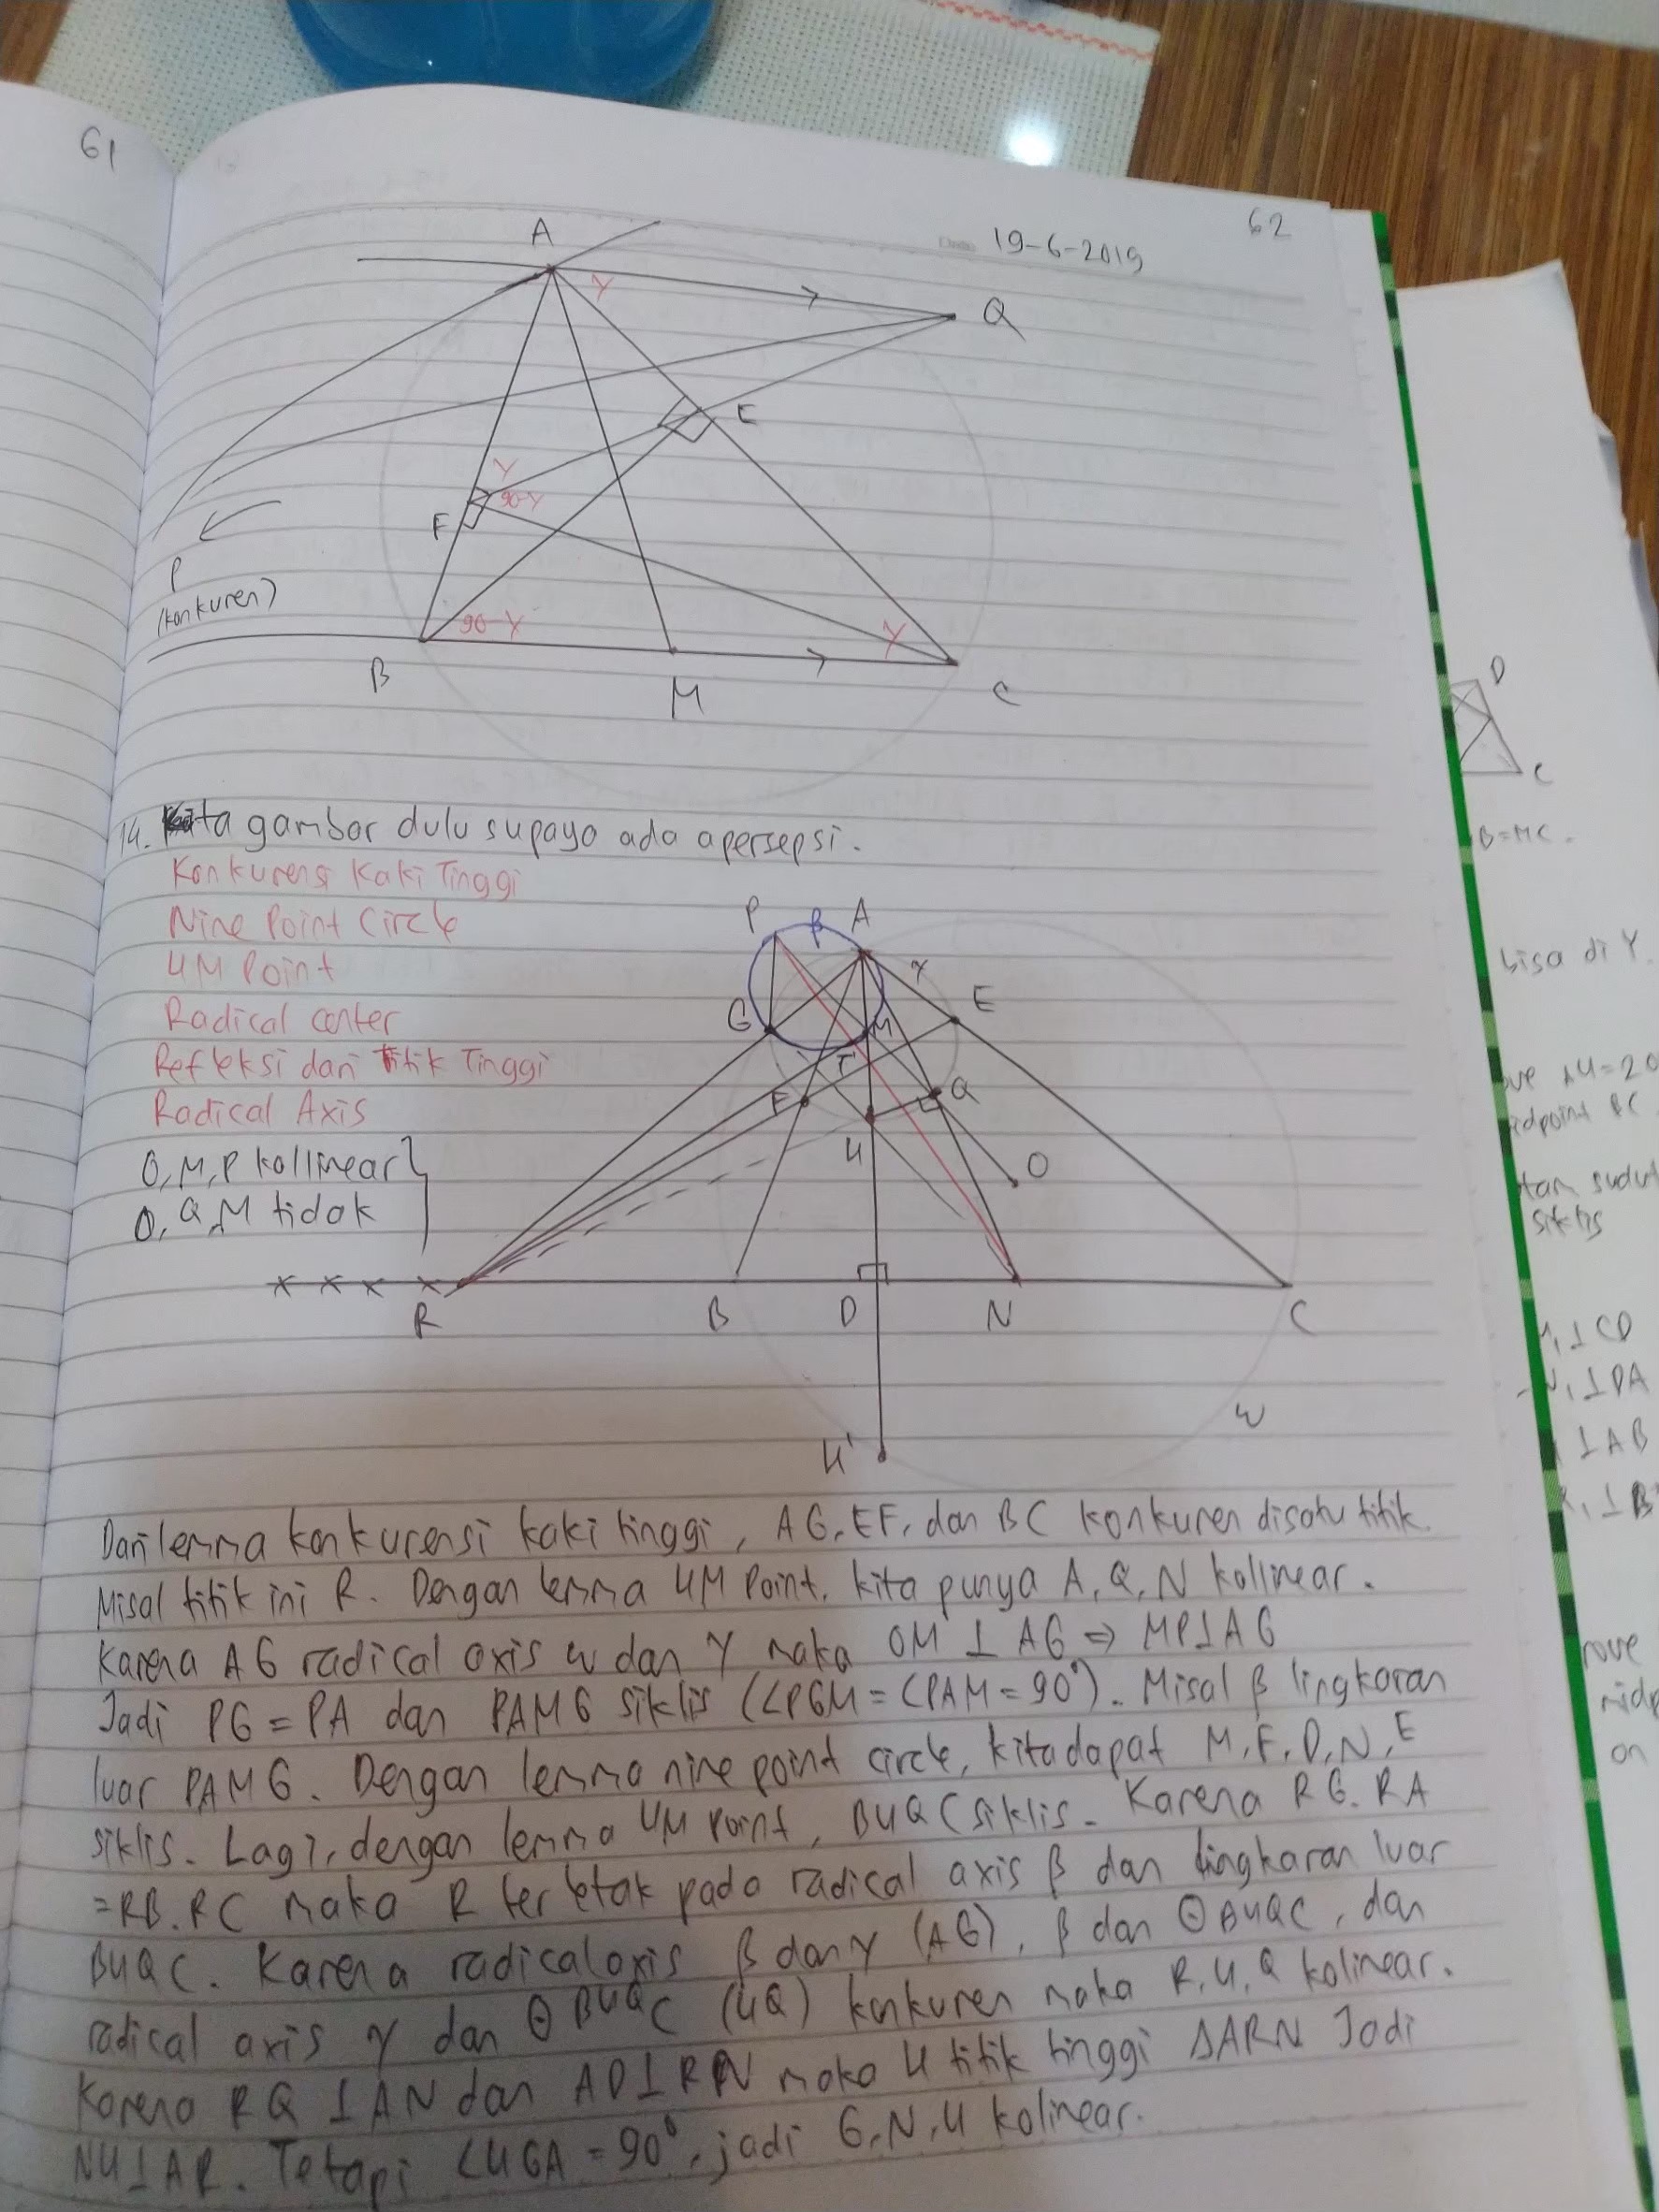 61
62
19-6-2019
A
Q
γ
E
γ
90-γ
F
P
(konkuren)
90-γ
γ
B
M
C
D
C
14. Kita gambar dulu supaya ada apersepsi.
B=MC.
Konkurensi Kaki Tinggi
Nine Point Circle
HM Point
Radical center
Refleksi dari titik Tinggi
Radical Axis
O, M, P kollinear
O, Q, M tidak
P β A
γ
G
M
E
T
F
Q
H
O
R B D N C
ω
H'
bisa di Y.
midpoint BC
siklis
⊥ CD
⊥ DA
⊥ AB
on
Dari lemma konkurensi kaki tinggi, AG, EF, dan BC konkuren disatu titik.
Misal titik ini R. Dengan lemma HM Point, kita punya A, Q, N kollinear.
Karena AG radical axis ω dan γ maka OM ⊥ AG ⇒ MP⊥AG
Jadi PG = PA dan PAMG siklis (∠PGM = ∠PAM = 90°). Misal β lingkaran
luar PAMG. Dengan lemma nine point circle, kita dapat M, F, D, N, E
siklis. Lagi, dengan lemma HM Point, BHQC siklis. Karena RG.RA
=RB.RC maka R terletak pada radical axis β dan lingkaran luar
BHQC. Karena radical axis β dan γ (AG), β dan ⊙BHQC, dan
radical axis γ dan ⊙BHQC (HQ) konkuren maka R, H, Q kolinear.
Karena RQ ⊥ AN dan AD⊥RN maka H titik tinggi ΔARN Jadi
NH⊥AR. Tetapi ∠HGA = 90°, jadi G, N, H kolinear.